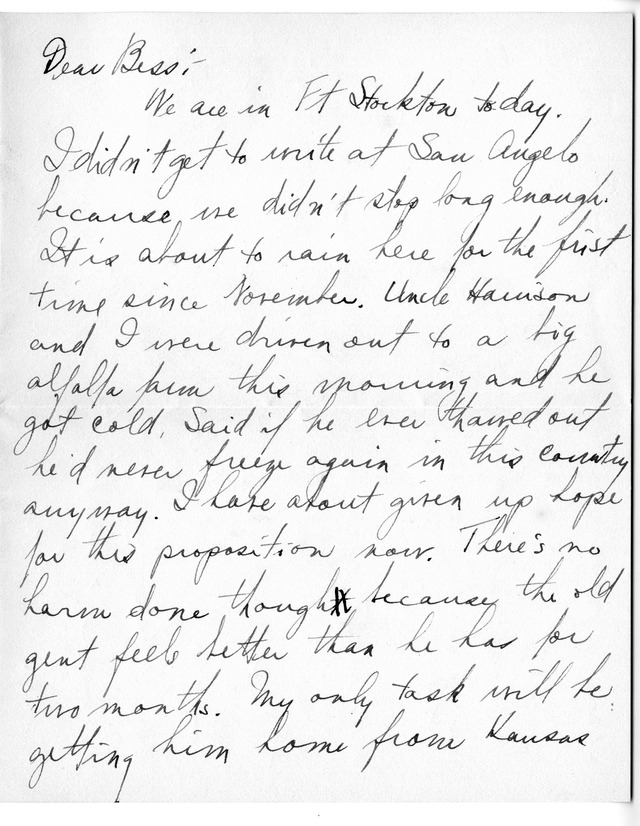 Dear Bess:-
We are in Ft Stockton today.
I didn't get to write at San Angelo
because we didn't stop long enough.
It is about to rain here for the first
time since November. Uncle Harrison
and I were driven out to a big
alfalfa farm this morning and he
got cold. Said if he ever thawed out
he'd never freeze again in this country
anyway. I have about given up hope
for this proposition now. There's no
harm done though because the old
gent feels better than he has for
two months. My only task will be
getting him home from Kansas